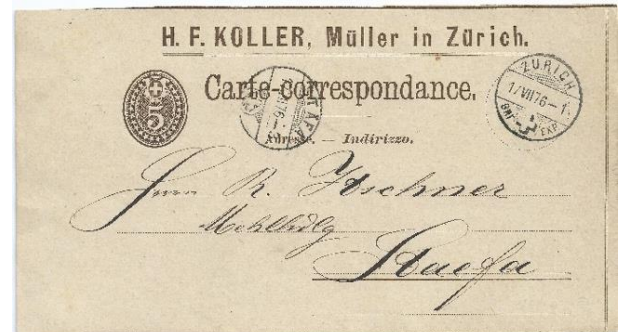 H. F. KOLLER, Müller in Zürich.
Carte-correspondance.
5
ZÜRICH
17 VII 76 - 1
BRF EXP.
Adresse. — Indirizzo.
Herrn R.
Mehlhdlg
Staefa